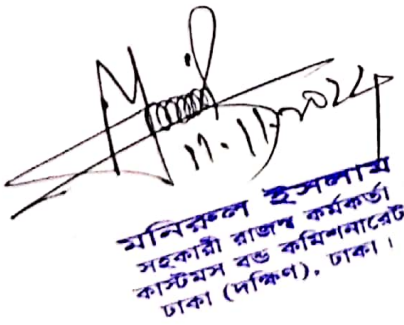 17.11.2022
মনিরুল ইসলাম
সহকারী রাজস্ব কর্মকর্তা
কাস্টমস বন্ড কমিশনারেট
ঢাকা (দক্ষিণ), ঢাকা।